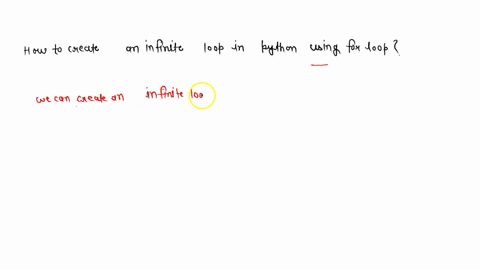 How to create an infinite loop in python using for loop?
we can create an infinite loo